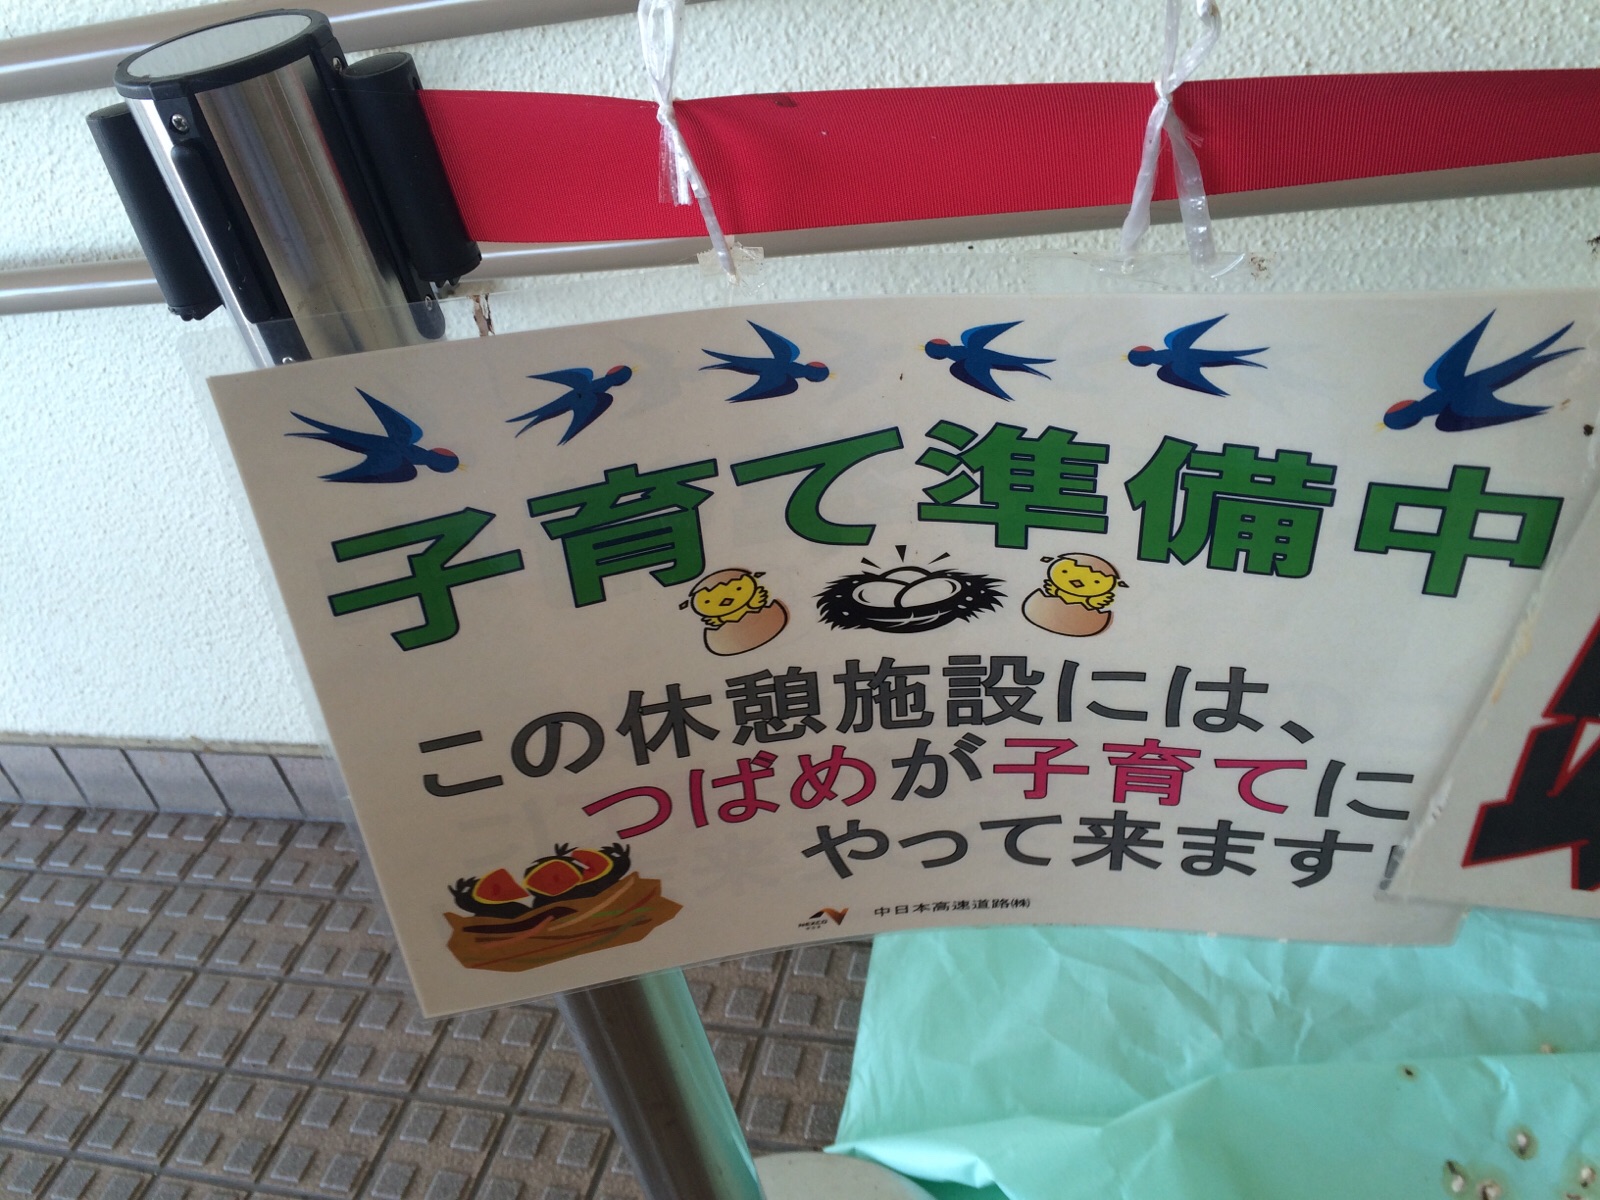 子育て準備中
この休憩施設には、
つばめが子育てに
やって来ます
NEXCO
中日本高速道路㈱